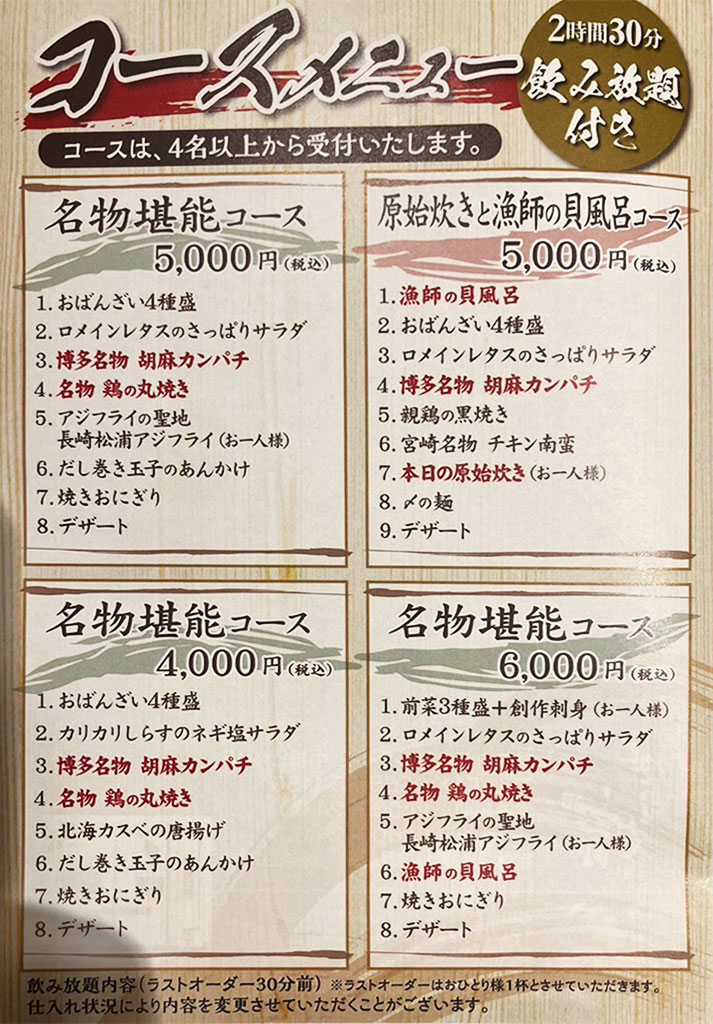 コースメニュー
2時間30分
飲み放題
付き
コースは、4名以上から受付いたします。
名物堪能コース
5,000円(税込)
1.おばんざい4種盛
2.ロメインレタスのさっぱりサラダ
3.博多名物 胡麻カンパチ
4.名物 鶏の丸焼き
5.アジフライの聖地
長崎松浦アジフライ(お一人様)
6.だし巻き玉子のあんかけ
7.焼きおにぎり
8.デザート
原始炊きと漁師の貝風呂コース
5,000円(税込)
1.漁師の貝風呂
2.おばんざい4種盛
3.ロメインレタスのさっぱりサラダ
4.博多名物 胡麻カンパチ
5.親鶏の黒焼き
6.宮崎名物 チキン南蛮
7.本日の原始炊き(お一人様)
8.〆の麺
9.デザート
名物堪能コース
4,000円(税込)
1.おばんざい4種盛
2.カリカリしらすのネギ塩サラダ
3.博多名物 胡麻カンパチ
4.名物 鶏の丸焼き
5.北海カスベの唐揚げ
6.だし巻き玉子のあんかけ
7.焼きおにぎり
8.デザート
名物堪能コース
6,000円(税込)
1.前菜3種盛+創作刺身(お一人様)
2.ロメインレタスのさっぱりサラダ
3.博多名物 胡麻カンパチ
4.名物 鶏の丸焼き
5.アジフライの聖地
長崎松浦アジフライ(お一人様)
6.漁師の貝風呂
7.焼きおにぎり
8.デザート
飲み放題内容(ラストオーダー30分前) ※ラストオーダーはおひとり様1杯とさせていただきます。
仕入れ状況により内容を変更させていただくことがございます。